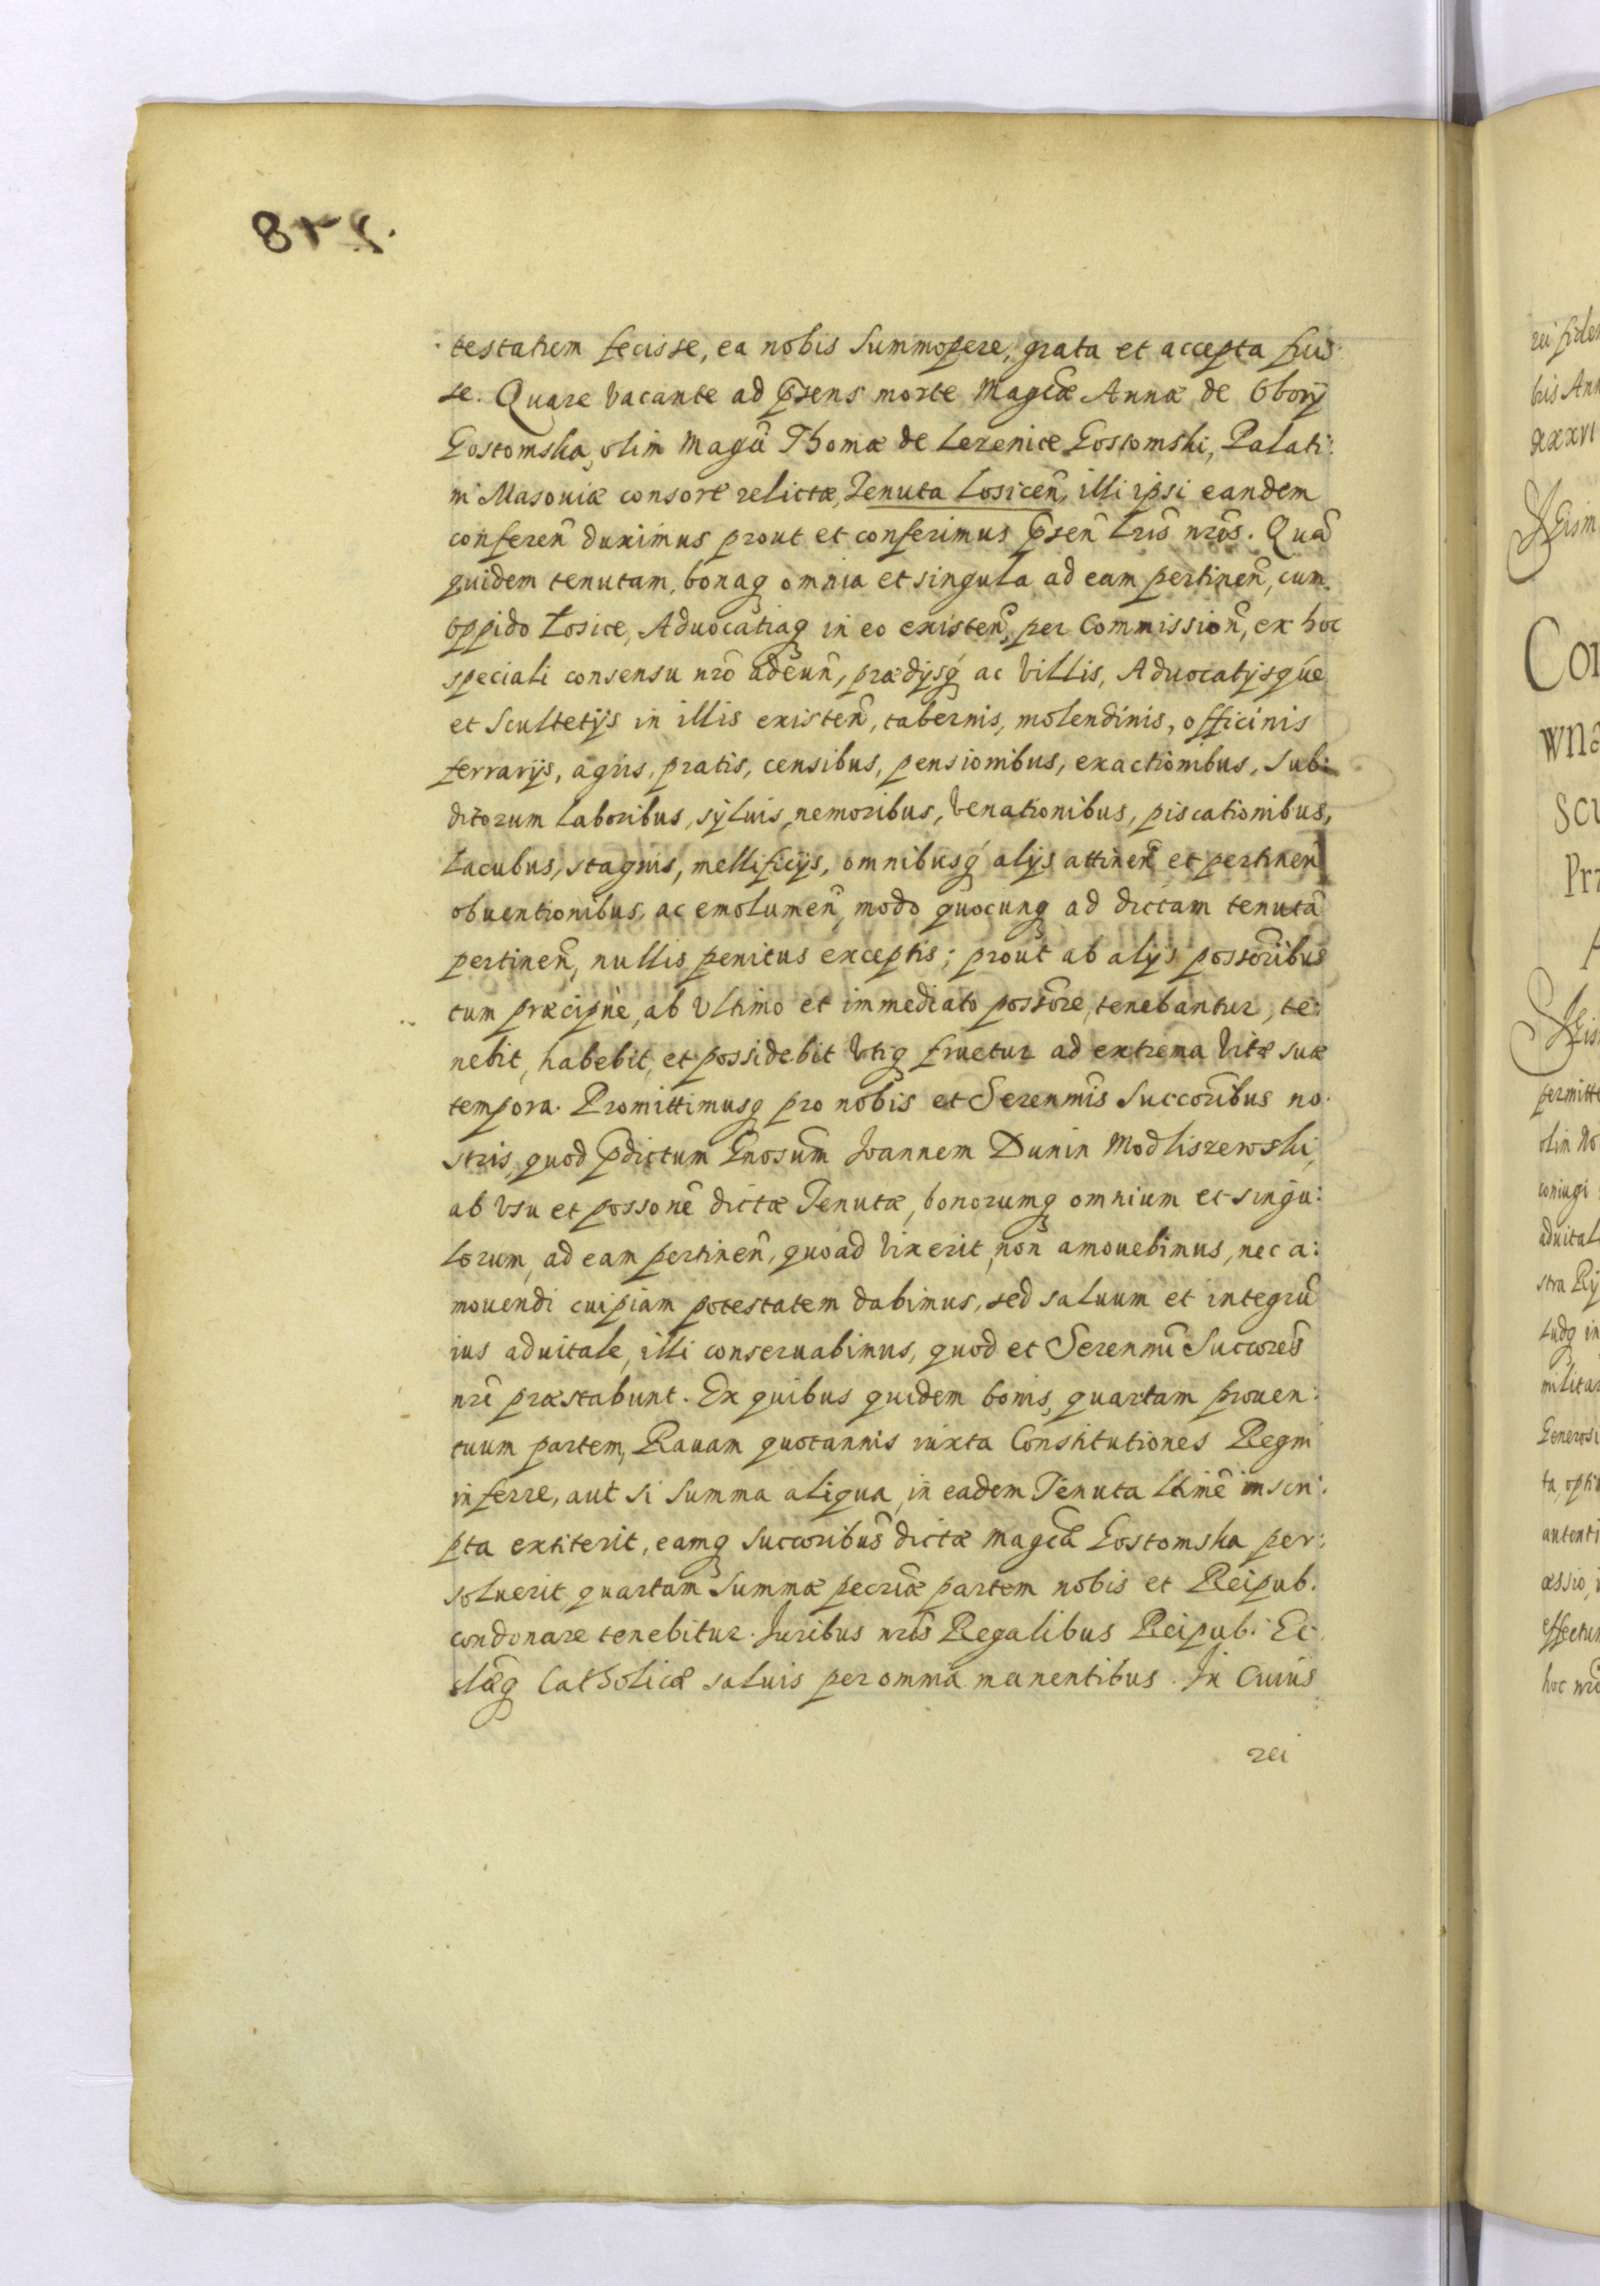 testatum fecisse, ea nobis summopere, grata et accepta fuis
se. Quare vacante ad p̃sens morte Mag̃cæ Annæ de Obory
Gostomska, olim Mag̃ci Thomæ de Lezenice Gostomski, Palati:
ni Masoviæ consorť relictæ, Tenuta Losiceñ, illi ipsi eandem
confereñ duximus prout et conferimus p̃señ Lr̃is nr̃is. Quã
quidem tenutam, bonaq omnia et singula ad eam pertineñ, cum
oppido Łosice, Aduocatiaq in eo existeñ, per Commissioñ, ex hoc
speciali consensu nr̃o adeuñ, prædijsq́ ac villis, Aduocatijsque
et Scultetijs in illis existeñ, tabernis, molendinis, officinis
ferrarijs, agris, pratis, censibus, pensionibus, exactionibus, sub:
ditorum laboribus, syluis, nemoribus, venationibus, piscationibus,
lacubus, stagnis, mellificijs, omnibusq́ alijs attineñ et pertineñ
obuentionibus, ac emolumeñ, modo quocunq ad dictam tenutã
pertineñ, nullis penitus exceptis; prout ab alijs poss̃oribus
tum præcipue, ab vltimo et immediato poss̃ore, tenebantur, te:
nebit, habebit, et possidebit vtiq fruetur ad extrema vitæ suæ
tempora. Promittimusq pro nobis et Serenm̃is Succor̃ibus no.
stris, quod p̃dictum Gnosum̃ Joannem Dunin Modliszewski,
ab vsu et possonẽ dictæ Tenutæ, bonorumq omnium et singu:
lorum, ad eam pertineñ, quoad vixerit, non amouebimus, nec a:
mouendi cuipiam potestatem dabimus, sed saluum et integrũ
ius aduitale, illi conseruabimus, quod et Serenmĩ Succorẽs
nrĩ præstabunt. Ex quibus quidem bonis, quartam prouen:
tuum partem, Rauam quotannis iuxta Constitutiones Regni
inferre, aut si summa aliqua, in eadem Tenuta ltimẽ inscri:
pta extiterit, eamq succoribus̃ dictæ Mag̃cæ Gostomska per:
soluerit, quartam summæ pecr̃iæ partem nobis et Reipub.
condonare tenebitur. Juribus nr̃is Regalibus Reipub. Ec
clæq̃ Catholicæ saluis per omnia manentibus. In Cuius
rei